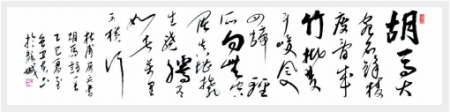 胡馬大
宛名鋒棱
瘦骨成
竹批雙
耳峻風入
四蹄輕
所向無空
闊真堪托死
生驍騰有
如此萬里
可橫行
杜甫房兵曹
胡馬詩
乙巳夏
於龍城